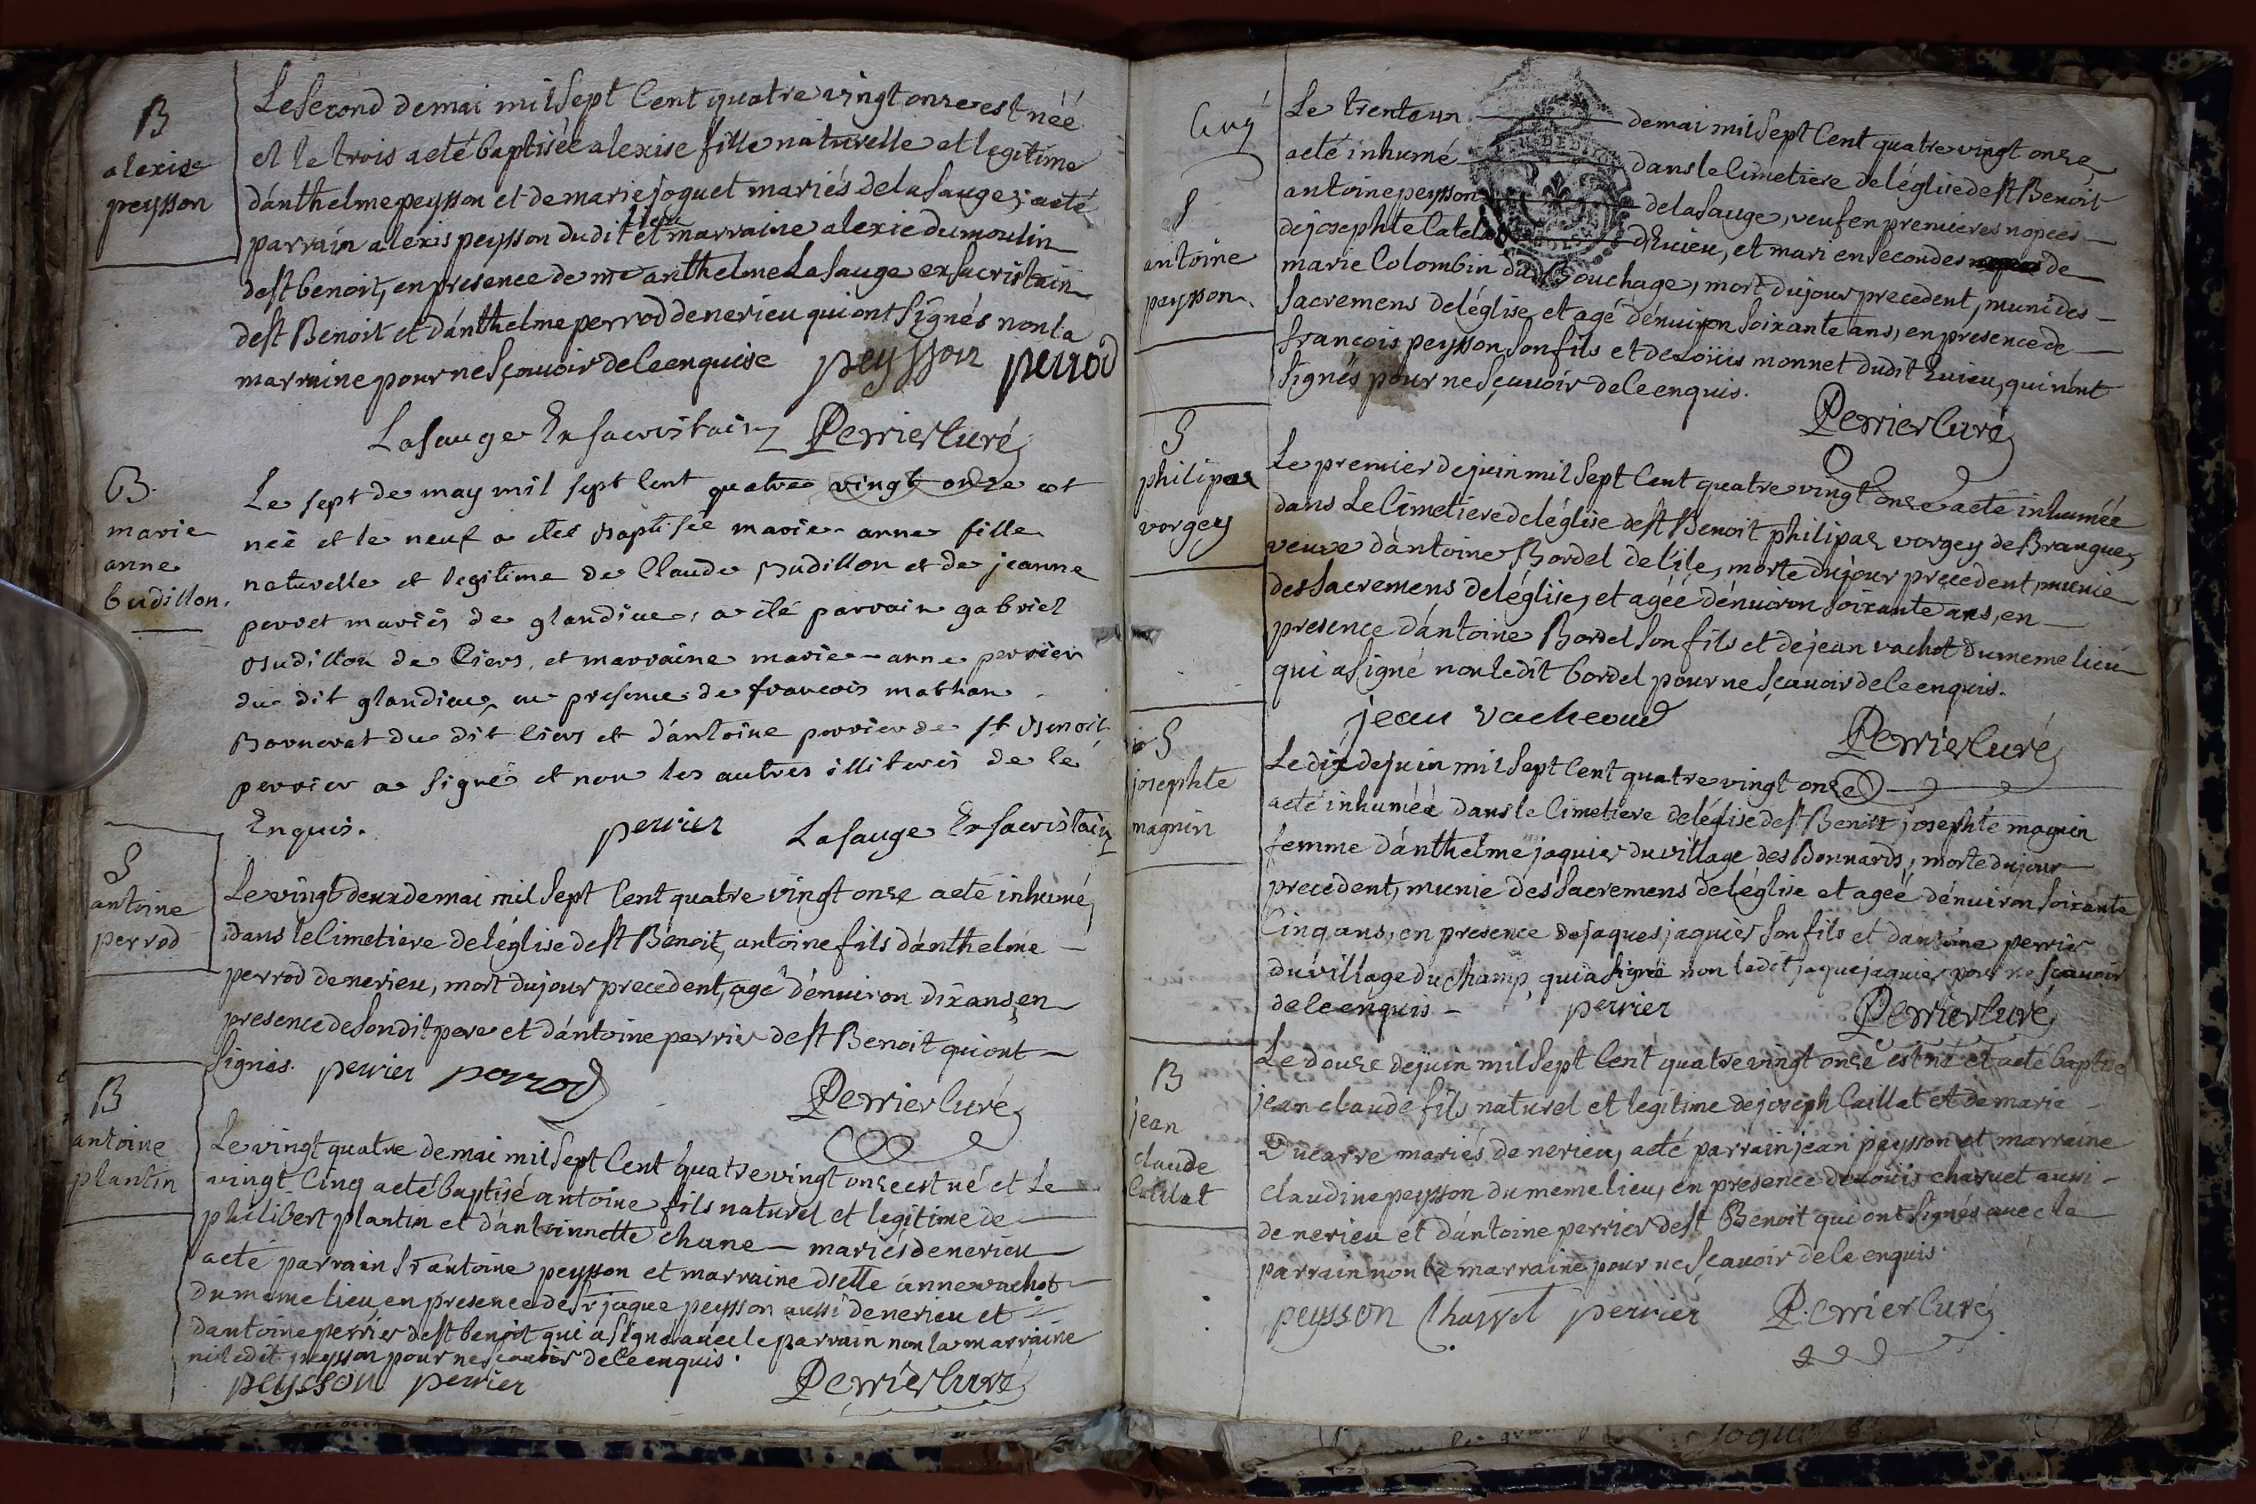 B
alexise
peysson
Le second de mai mil sept Cent quatre vingt onze est néé
et le trois a eté baptisée alexise fille naturelle et legitime
d'anthelme peysson et de marie joquet mariés de la sauge; a eté
parrain alexis peysson dudit lieu et marraine alexie dumoulin
de st benoit, en presence de me anthelme Lasauge exsacristain
de st Benoit et d'anthelme perrod de nerieu qui ont signés non la
marraine pour ne sçavoir de ce enquise peysson perrod
Lasauge Exsacristain Perrier Curé
B
marie
anne
budillon.
Le sept de may mil sept Cent quatre vingt onze est
neé et le neuf a eteé Baptisée marie-anne fille
naturelle et legitime de Claude Budillon et de jeanne
perret mariés de glandieu, a eté parrain gabriel
Budillon de Ciers, et marraine marie-anne perrier
du dit glandieu, en presence de francois mathan
Bornerat du dit Ciers et d'antoine perrier de st Benoit
perrier a signé et non les autres illiterés de ce
Enquis. perrier Lasauge Exsacristain
S
antoine
perrod
Le vingt deux de mai mil sept Cent quatre vingt onze a eté inhumé,
dans le Cimetiere de l'église de st Benoit, antoine fils d'anthelme
perrod de nerieu, mort du jour precedent, agé d'enuiron dix ans, en
presence de son dit pere et d'antoine perrier de st Benoit qui ont
signés. perrier perrod Perrier Curé
B
antoine
plantin
Le vingt quatre de mai mil sept Cent quatre vingt onze est né et Le
vingt Cinq a eté baptisé antoine fils naturel et legitime de
philibert plantin et d'antoinnette chane mariés de nerieu
a eté parrain Sr antoine peysson et marraine dlelle anne vachot
du meme lieu, en presence de Sr jaque peysson aussi de nerieu et
d'antoine perrier de st benoit qui a signé avec le parrain non la marraine
ni ledit peysson pour ne scauoir de ce enquis.
peysson perrier Perrier Curé
Cinq
S
antoine
peysson
Le trente un de mai mil sept Cent quatre vingt onze,
a eté inhumé dans le Cimetiere de l'église de st Benoit
antoine peysson de la sauge, veuf en premieres nopces
de josephte Catelan d'Euieu, et mari en secondes de
marie Colombin du Bouchage, mort du jour precedent, muni des
sacremens de l'église, et agé d'enuiron soixante ans, en presence de
francois peysson son fils et de Loüis monnet dudit Euieu, qui n'ont
signés pour ne sçauoir de ce enquis.
Perrier Curé
S
philipae
vorgey
Le premier de juin mil sept Cent quatre vingt onze a eté inhumée
dans Le Cimetiere de l'église de st Benoit philipae vorgey de Brangue,
veuve d'antoine Bordel de l'ile, morte du jour precedent, munie
des sacremens de l'église, et agée d'enuiron soixante ans, en
presence d'antoine Bordel son fils et de jean vachot du meme lieu
qui a signé non ledit bordel pour ne sçauoir de ce enquis.
jean vacheoud Perrier Curé
S
josephte
magnin
Le dix de juin mil sept Cent quatre vingt onze
a eté inhumée dans le Cimetiere de l'église de st Benoit josephte magnin
femme d'anthelme jaquier du village des Bonnards, morte du jour
precedent, munie des sacremens de l'église et ageé d'enuiron soixante
Cinq ans, en presence de jaques jaquier son fils et d'antoine perrier
du village du champ, qui a signé non ledit jaque jaquier pour ne scauoir
de ce enquis perrier Perrier Curé
B
jean
claude
Caillat
Le douze de juin mil sept Cent quatre vingt onze est né et a eté baptisé
jean claude fils naturel et legitime de joseph Caillat et de marie
Ducarre mariés de nerieu, a eté parrain jean peysson et marraine
claudine peysson du meme lieu, en presence de Loüis charuet aussi
de nerieu et d'antoine perrier de st Benoit qui ont signés avec le
parrain non la marraine pour ne scauoir de ce enquis.
peysson Charvet perrier Perrier Curé